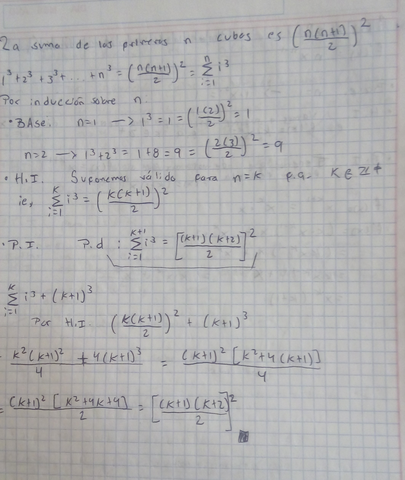 La suma de los primeros n cubos es (n(n+1)/2)^2
1^3+2^3+3^3+...+n^3 = (n(n+1)/2)^2 = \sum_{i=1}^{n} i^3
Por inducción sobre n
• BASE. n=1 —> 1^3=1=(1(2)/2)^2=1
n=2 —> 1^3+2^3=1+8=9=(2(3)/2)^2=9
• H.I. Suponemos válido para n=k p.a. k∈Z^+
ie, \sum_{i=1}^{k} i^3=(k(k+1)/2)^2
• P.I. P.d : \sum_{i=1}^{k+1} i^3=[(k+1)(k+2)/2]^2
\sum_{i=1}^{k} i^3+(k+1)^3
Por H.I. (k(k+1)/2)^2+(k+1)^3
= k^2(k+1)^2/4 + 4(k+1)^3 = (k+1)^2[k^2+4(k+1)]/4
= (k+1)^2[k^2+4k+4]/2 = [(k+1)(k+2)/2]^2